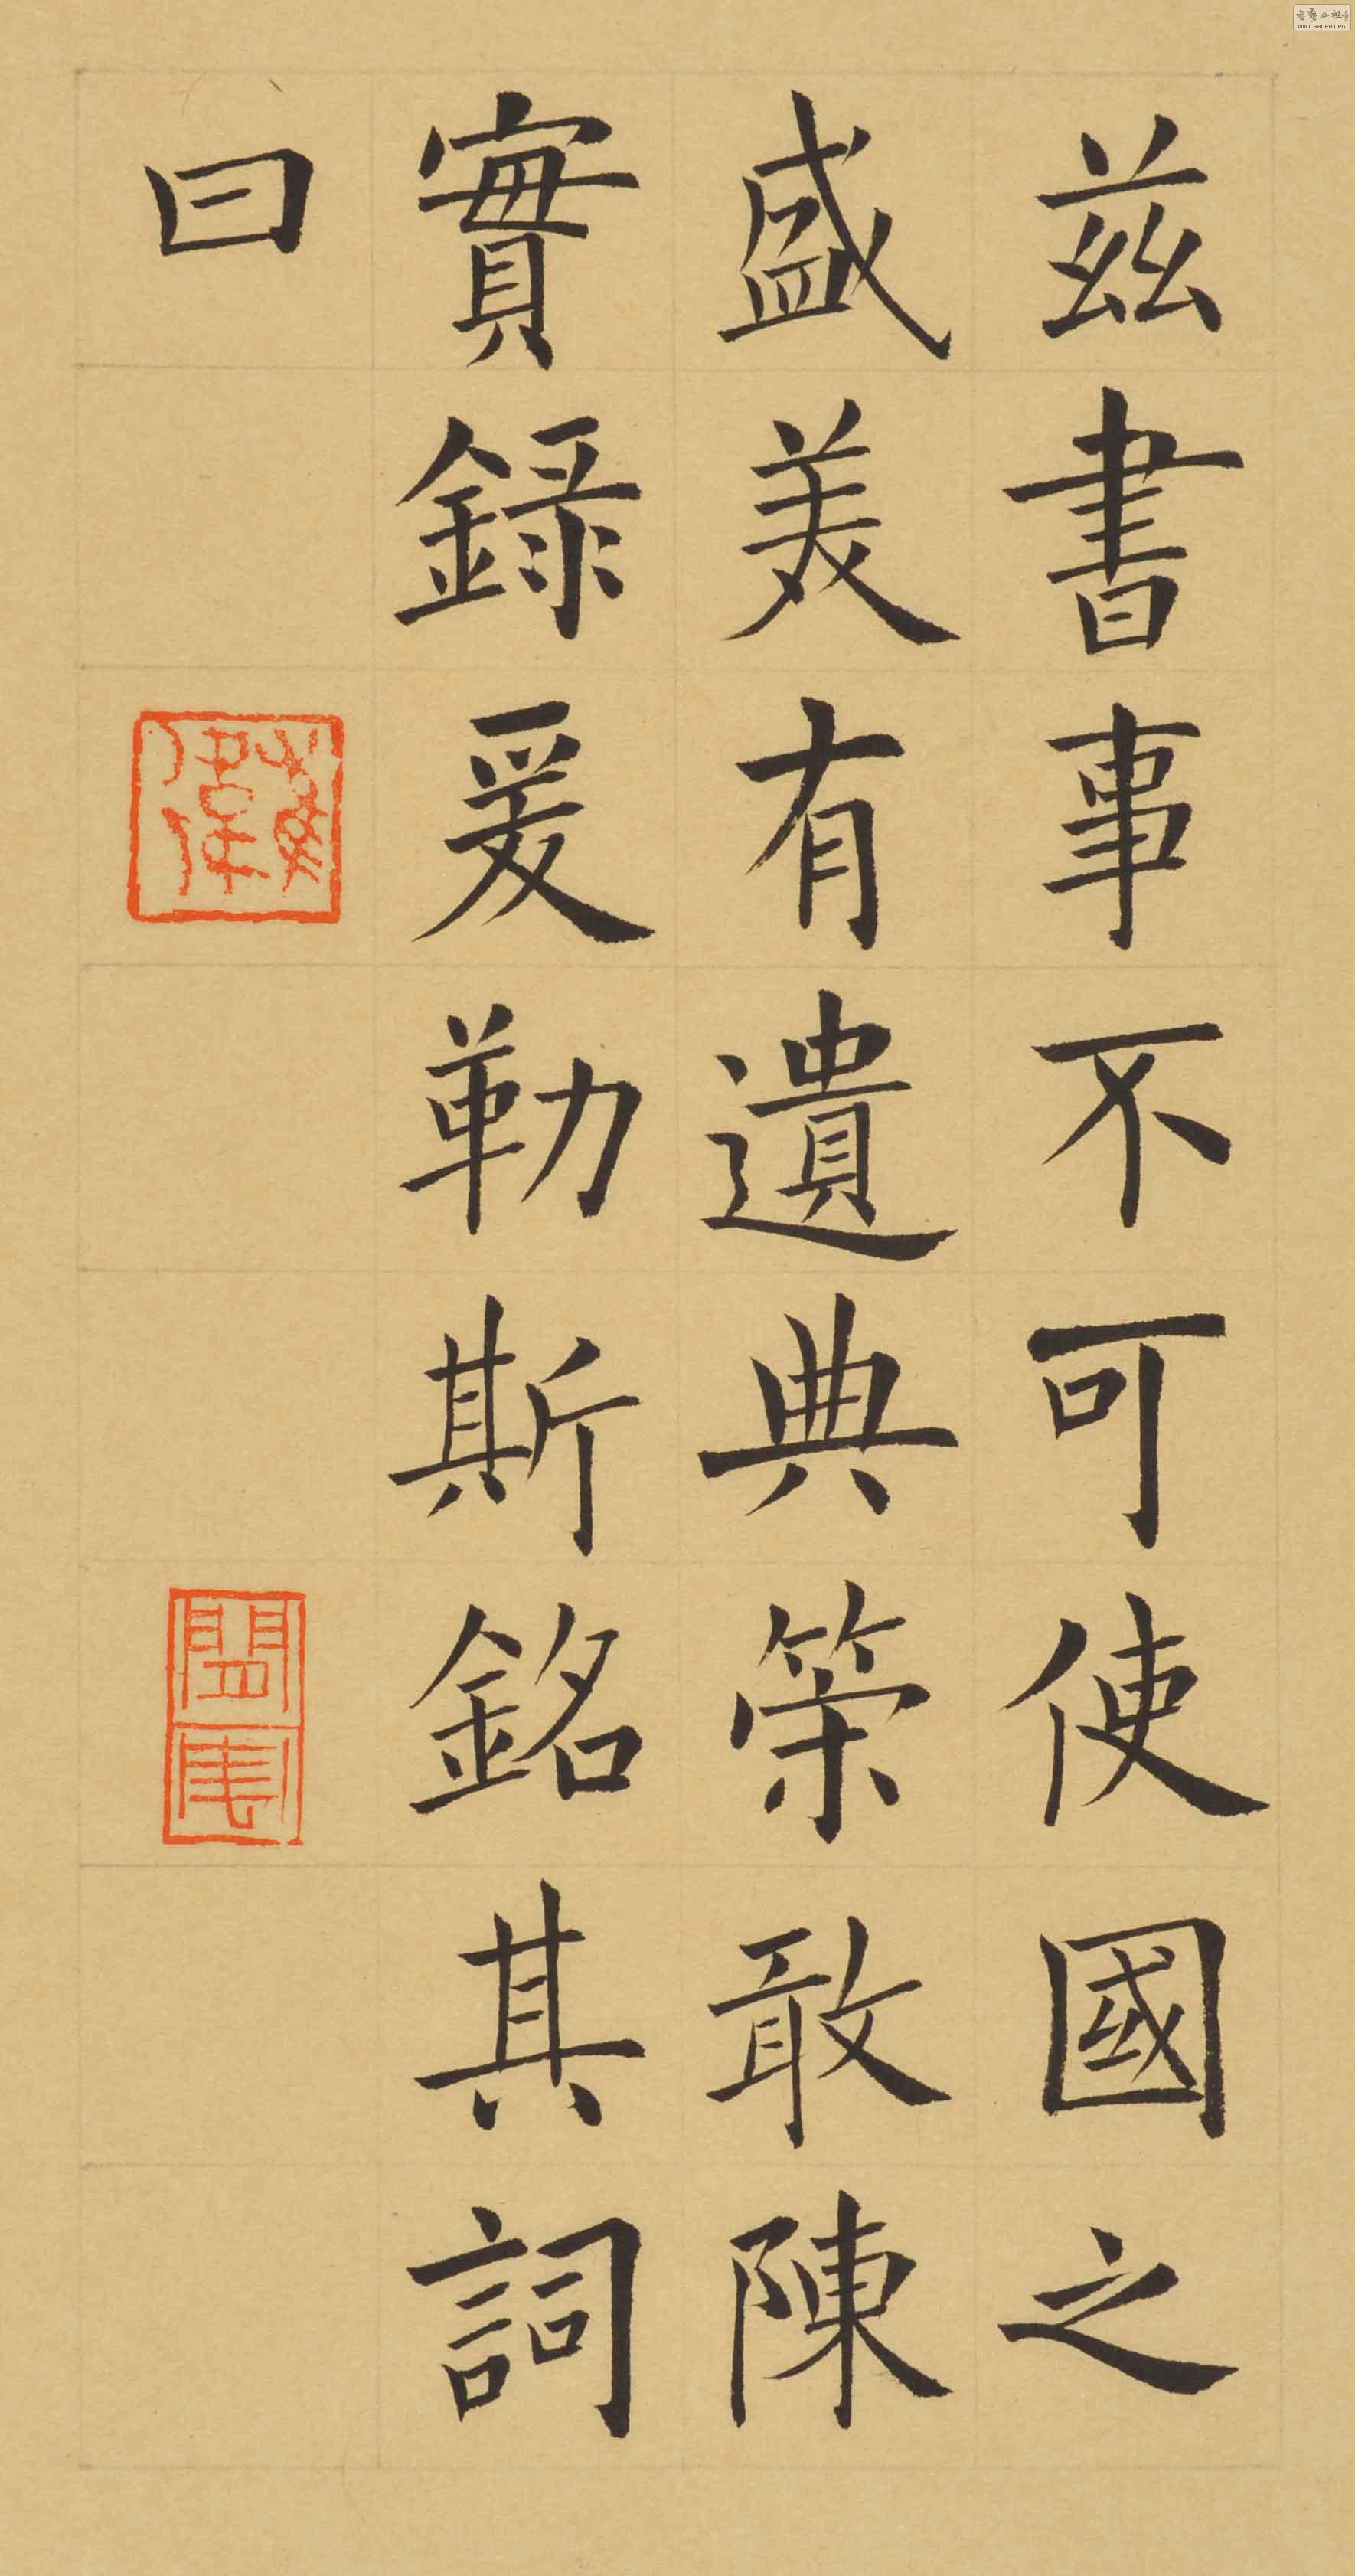 茲書事不可使國之
盛美有遺典策敢陳
實録爰勒斯銘其詞
曰
WWW.SHUFA.ORG